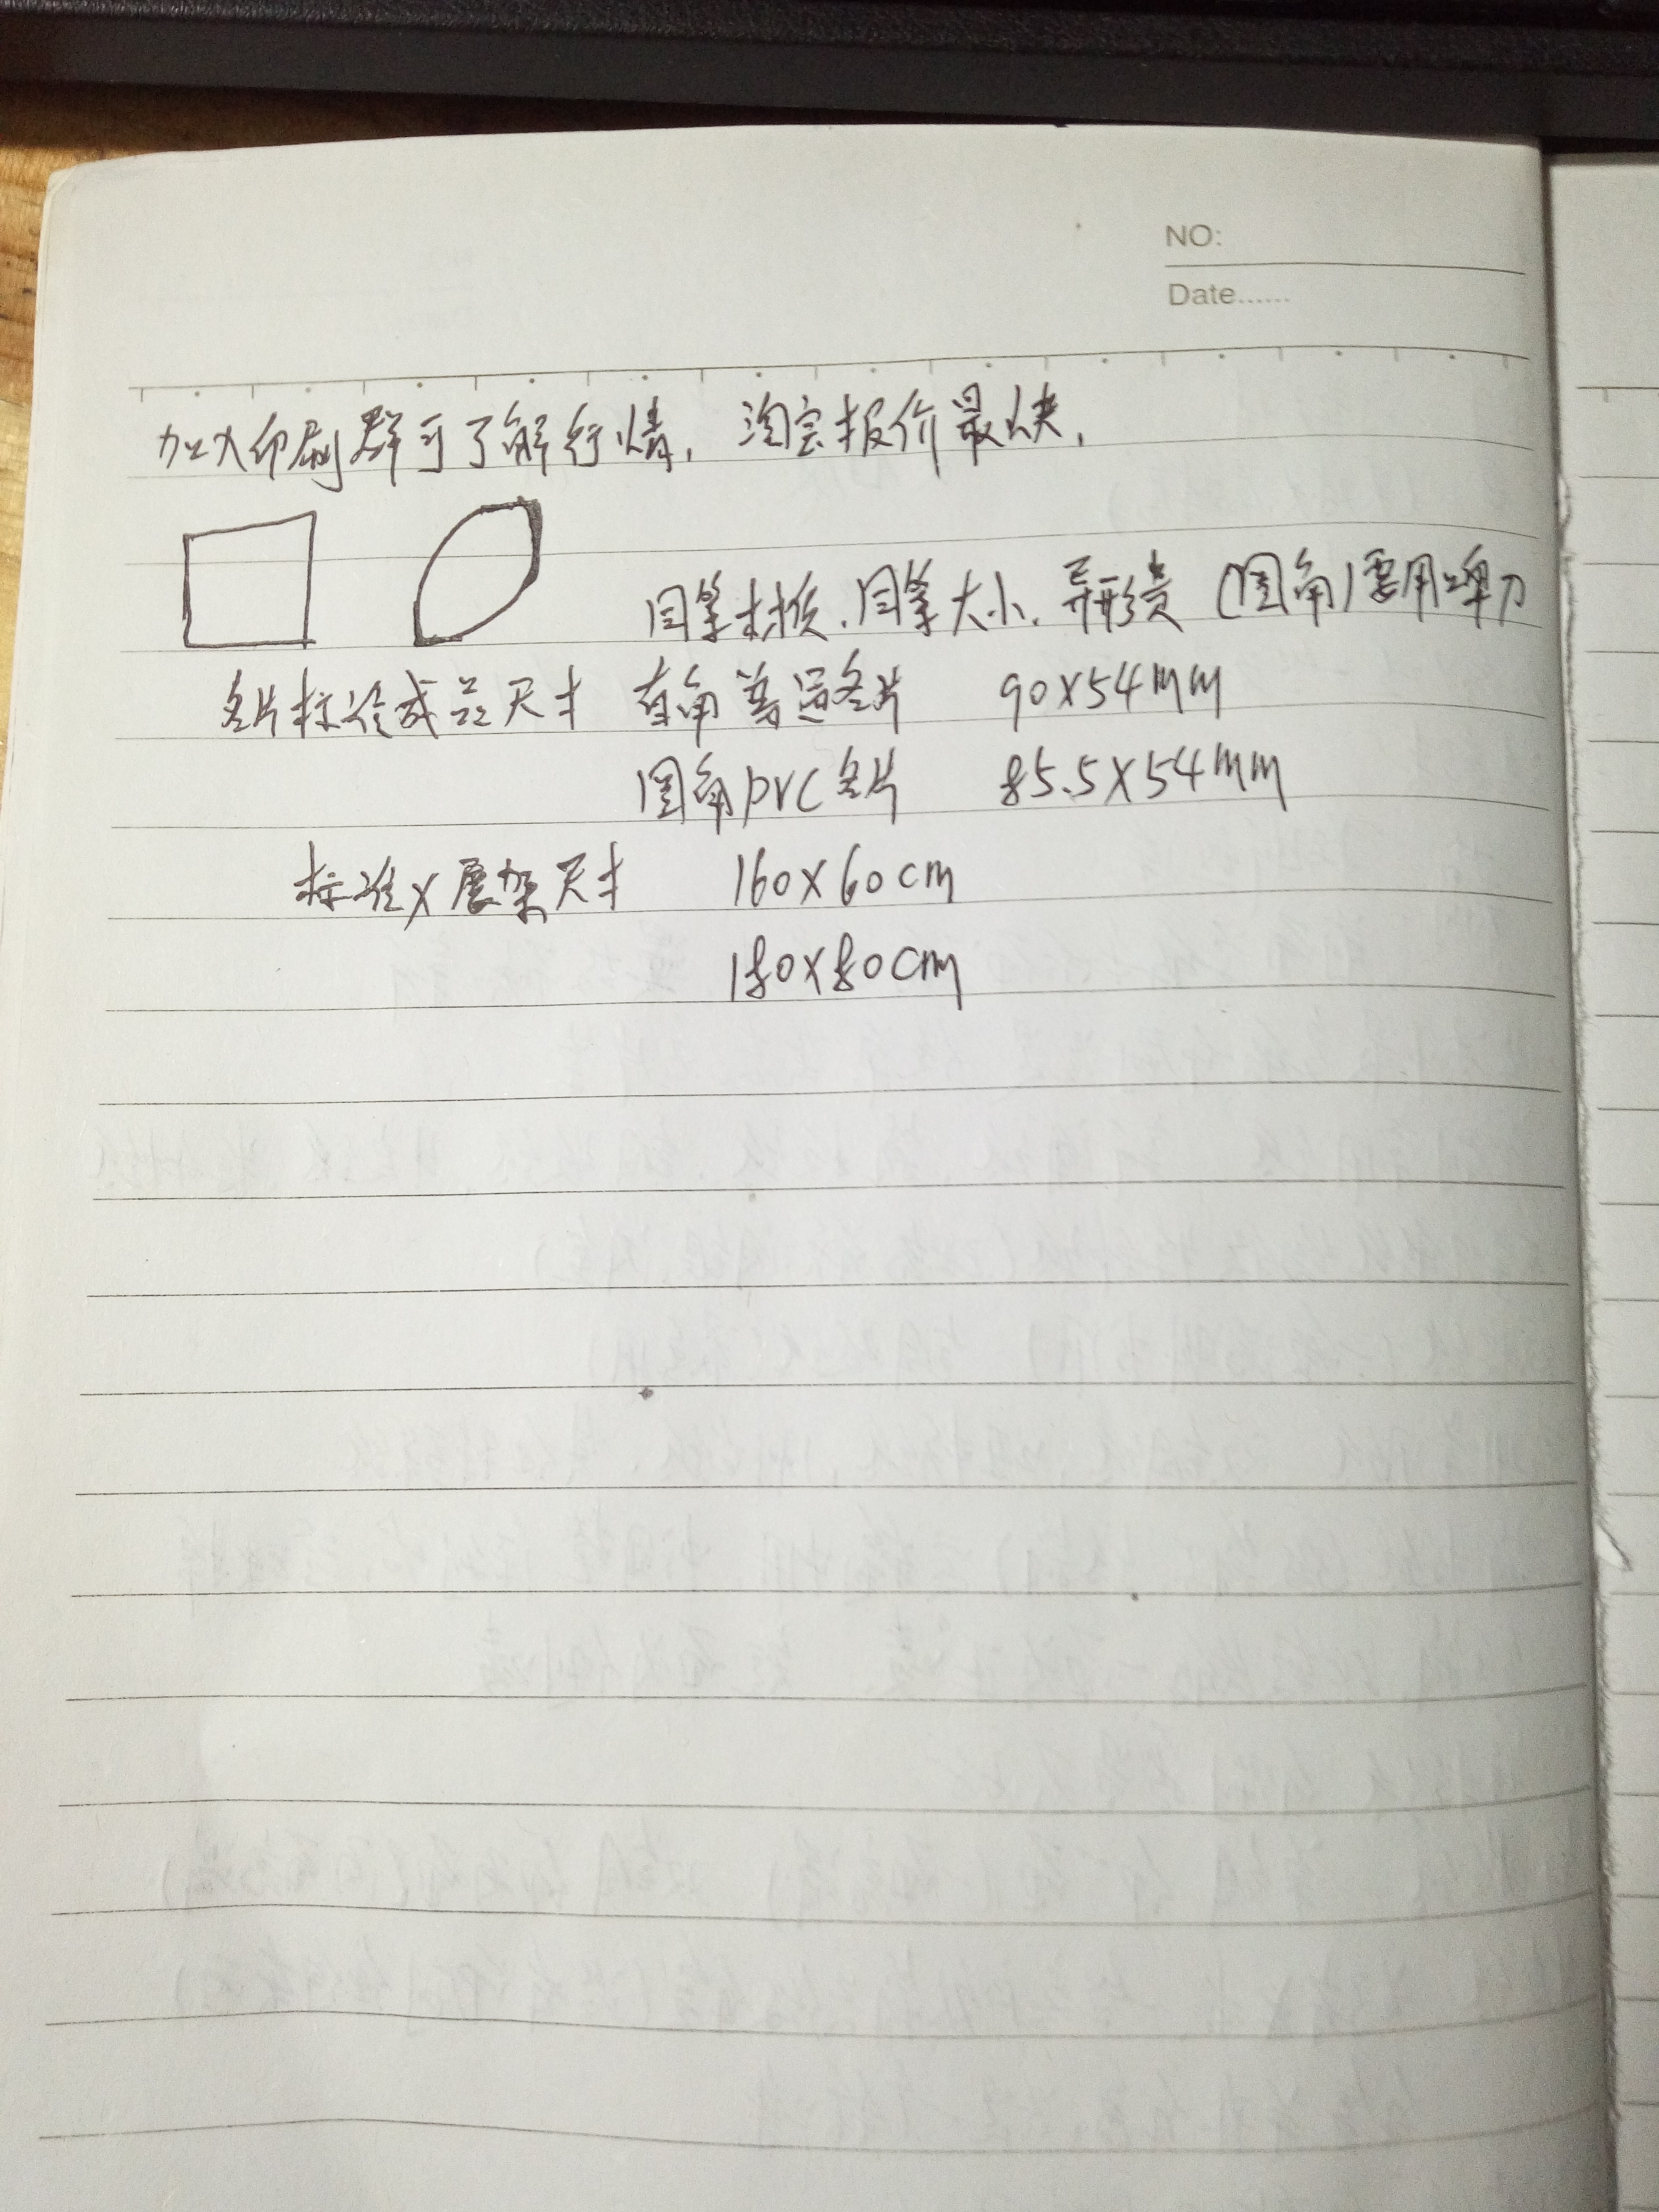 NO:
Date......
加入印刷群可了解行情，淘宝报价最快，
同等材质，同等大小，异形贵（圆角）要用啤刀
名片标准成品尺寸 直角普通名片 90X54mm
圆角PVC名片 85.5X54mm
标准X展架尺寸 160X60cm
180X80cm